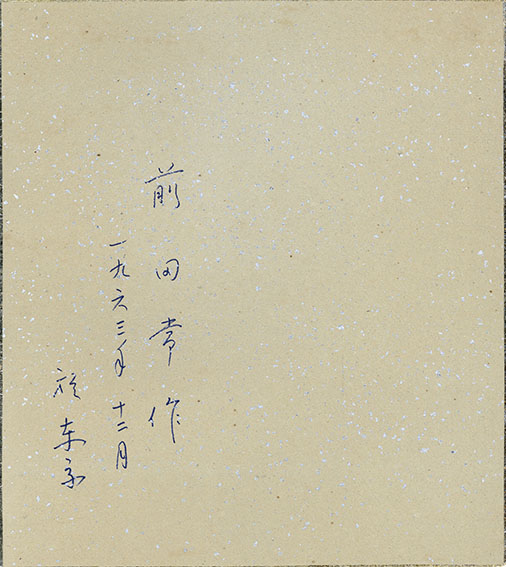 前田常作
一九六三年十二月
於东京